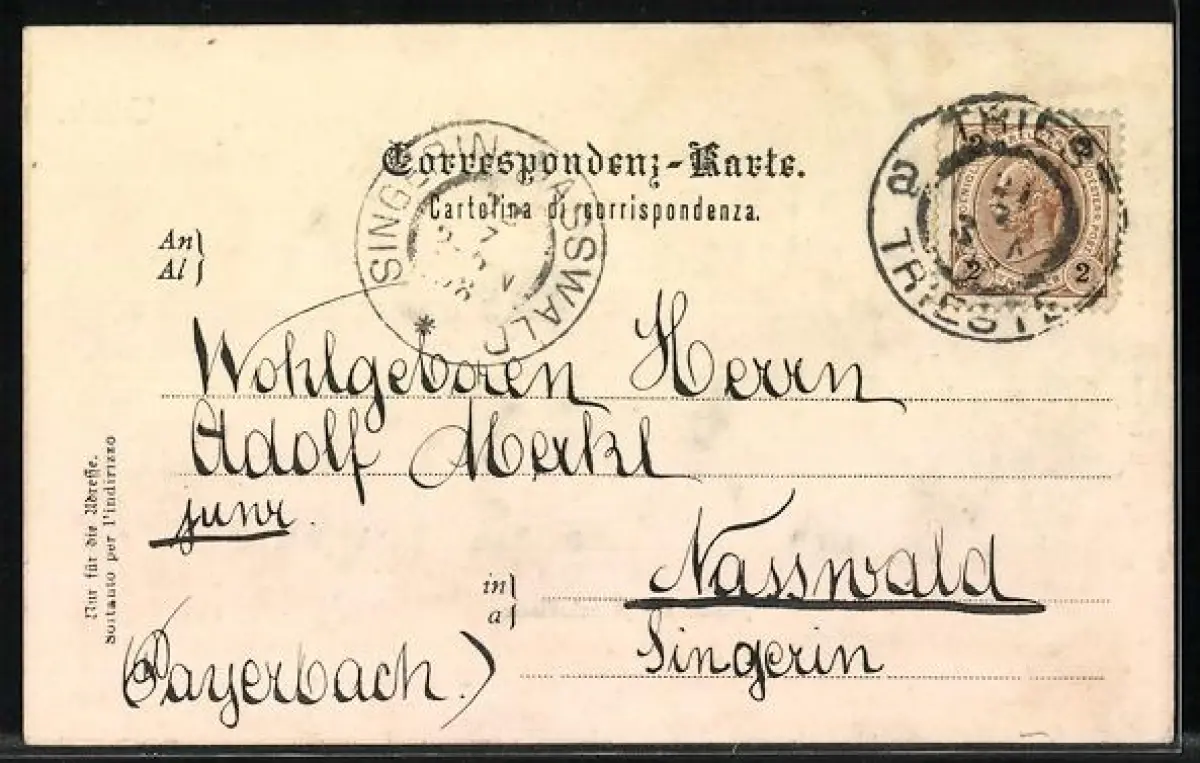 Correspondenz-Karte.
Cartolina di corrispondenza.
SINGERIN NASSWALD
2 TRIESTE TRIESTE
2 2
2 2
An
Al
Wohlgeboren Herrn
Adolf Merkl
junr.
in
a
Nasswald
Singerin
(Payerbach.)
Nur für die Adresse.
Soltanto per l'indirizzo